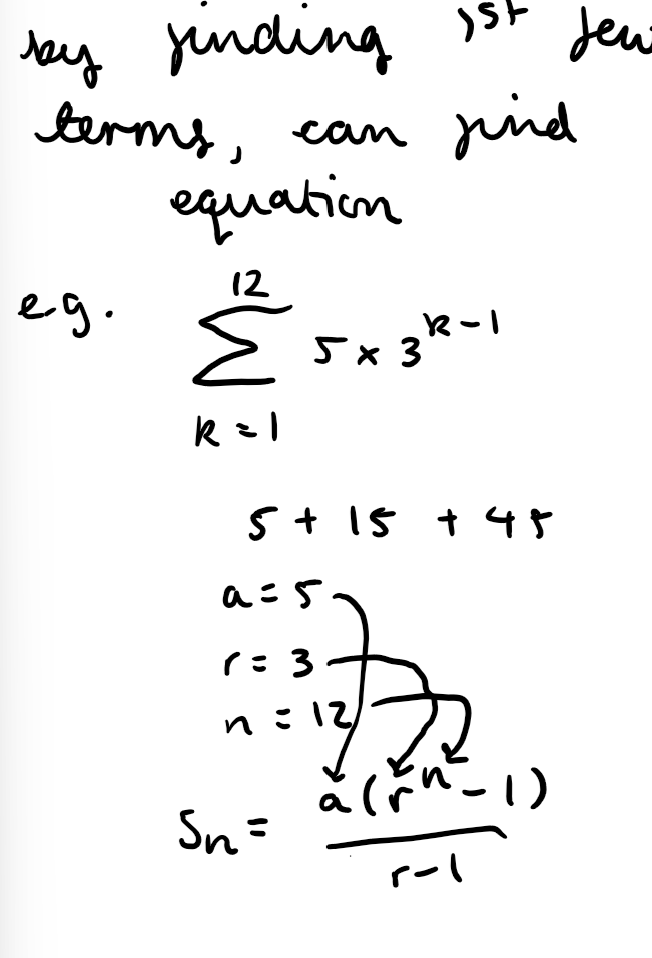 by finding 1st few
terms, can find
equation
e.g. 12
∑ 5 × 3^(k-1)
k=1
5 + 15 + 45
a = 5
r = 3
n = 12
Sn = a(r^n - 1)
r-1